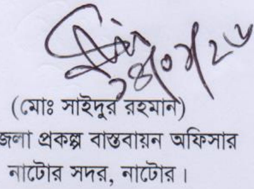 (মোঃ সাইদুর রহমান)
জলা প্রকল্প বাস্তবায়ন অফিসার
নাটোর সদর, নাটোর।